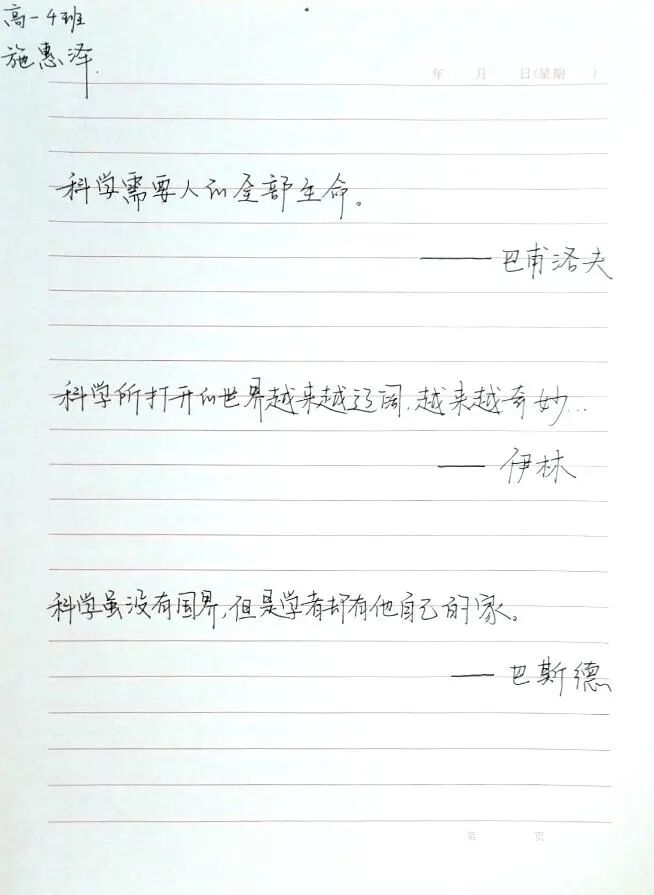 高一4班
施惠泽
年 月 日(星期 )
科学需要人的全部生命。
——巴甫洛夫
科学所打开的世界越来越辽阔,越来越奇妙…
——伊林
科学虽没有国界,但是学者却有他自己的家。
——巴斯德
第 页